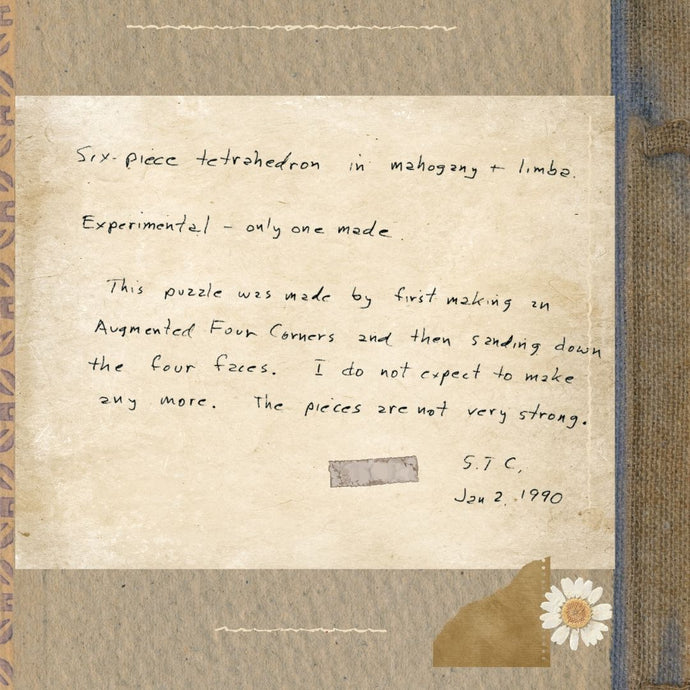 Six-piece tetrahedron in mahogany + limba.
Experimental - only one made.
This puzzle was made by first making an
Augmented Four Corners and then sanding down
the four faces. I do not expect to make
any more. The pieces are not very strong.
S.T C.
Jan 2, 1990